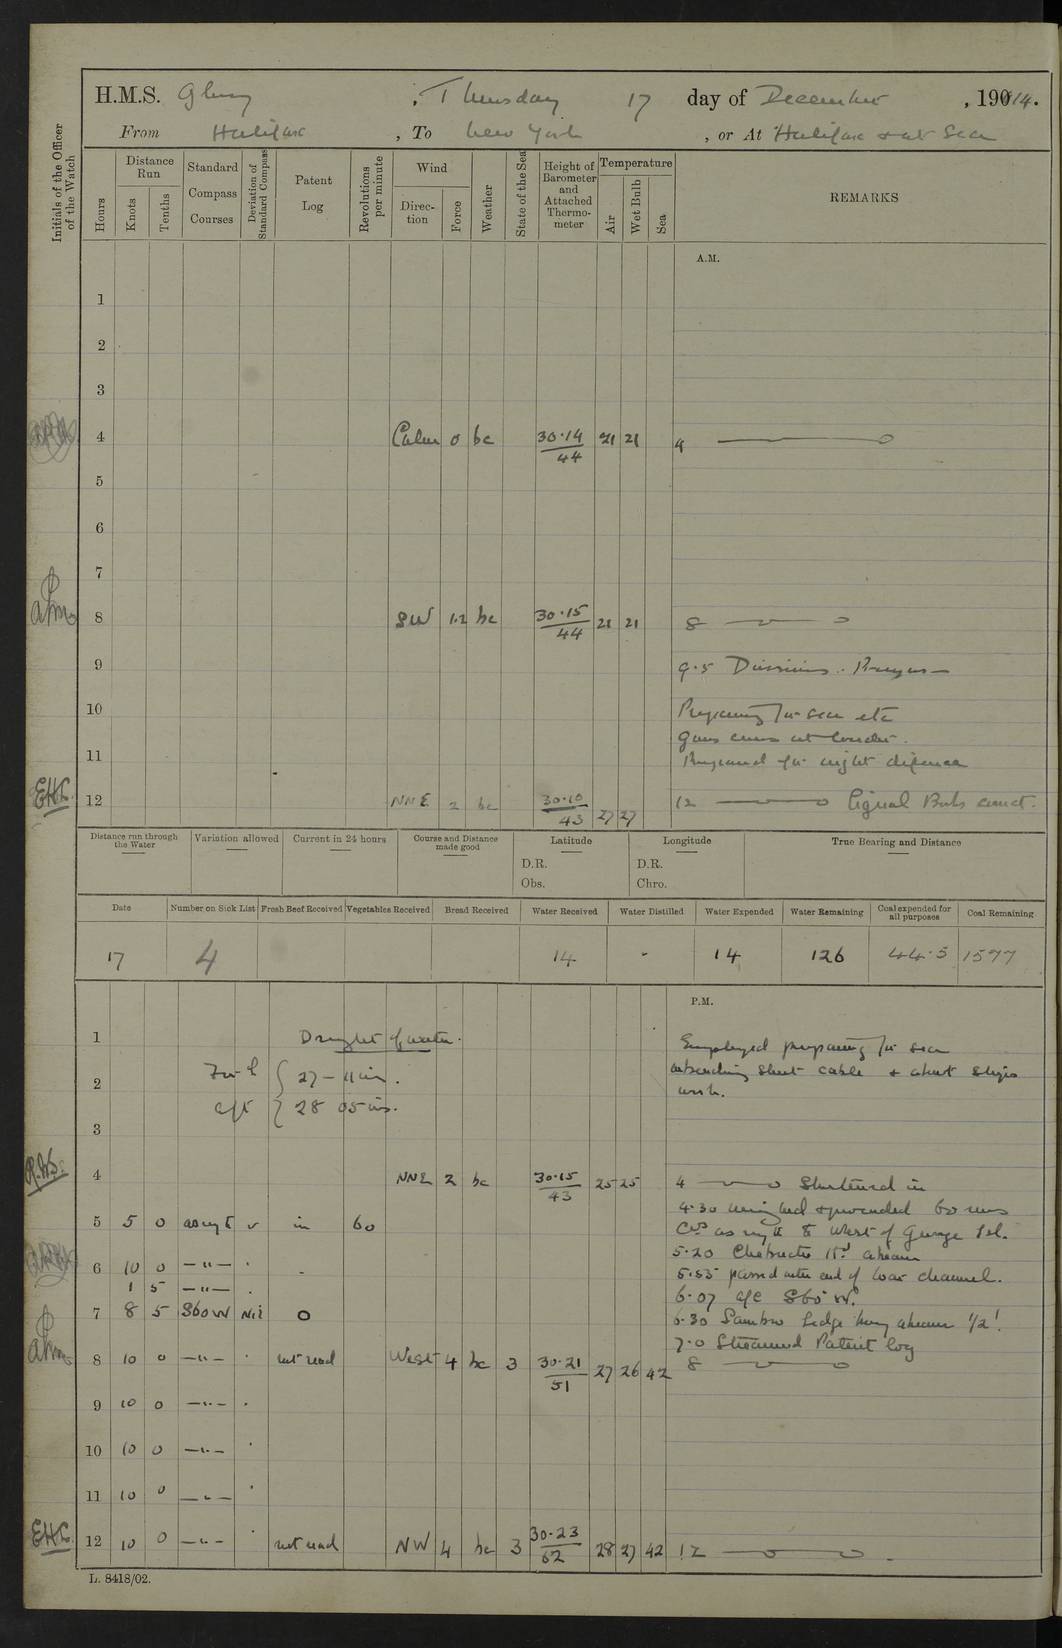 H.M.S. Glory, Thursday 17 day of December, 1914.
From Halifax, To New York, or At Halifax & at Sea
Initials of the Officer of the Watch
Hours
Distance Run
Knots
Tenths
Standard Compass Courses
Deviation of Standard Compass
Patent Log
Revolutions per minute
Wind
Direction
Force
Weather
State of the Sea
Height of Barometer and Attached Thermometer
Temperature
Air
Wet Bulb
Sea
REMARKS
A.M.
1
2
3
4 Calm 0 bc 30.14 44 21 21 4
5
6
7
8 SW 1.2 bc 30.15 44 21 21 8
9 9.5 Divisions. Prayers
10 Preparing for sea etc
Guns crews at loader.
11 Prepared for night defence
EHC. 12 NNE 2 bc 30.10 43 27 27 12 Signal Boys
Distance run through the Water
Variation allowed
Current in 24 hours
Course and Distance made good
Latitude
D.R.
Obs.
Longitude
D.R.
Chro.
True Bearing and Distance
Date Number on Sick List Fresh Beef Received Vegetables Received Bread Received Water Received Water Distilled Water Expended Water Remaining Coal expended for all purposes Coal Remaining
17 4 14 - 14 126 44.5 1577
P.M.
1 Draught of water. Employed preparing for sea
2 For'd 27 - 11 in. unbending sheet cable & about ships
work.
aft 28 05 ins.
3
4 NNE 2 bc 30.15 43 25 25 4 Shortened in
4.30 weighed & proceeded 60 revs
5 5 0 as reqte v in 60 Cos as reqte to West of George Isl.
5.20 Chebucto Hd ahead
6 10 0 —"— 5.55 passed outer end of war channel.
1 5 —"— 6.07 a/c S60°W.
7 8 5 S60W Nil 0 6.30 Sambro Ledge buoy abeam 1/2'.
7.0 Streamed Patent log
8 10 0 —"— not read West 4 bc 3 30.21 51 27 26 42 8
9 10 0 —"—
10 10 0 —"—
11 10 0 —"—
EHC. 12 10 0 —"— not read NW 4 bc 3 30.23 62 28 27 42 12
L. 8418/02.